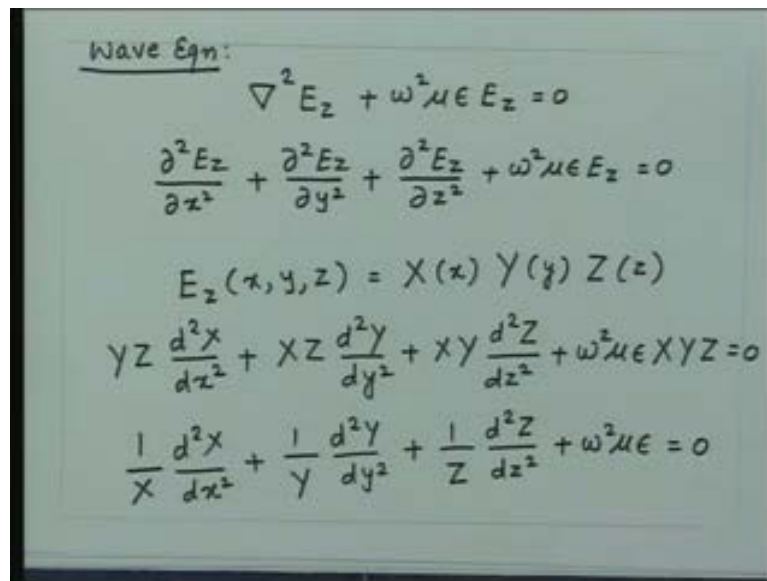 Wave Eqn:
∇²E_z + ω²μϵ E_z = 0
∂²E_z/∂x² + ∂²E_z/∂y² + ∂²E_z/∂z² + ω²μϵ E_z = 0
E_z(x,y,z) = X(x) Y(y) Z(z)
YZ d²X/dx² + XZ d²Y/dy² + XY d²Z/dz² + ω²μϵ XYZ = 0
1/X d²X/dx² + 1/Y d²Y/dy² + 1/Z d²Z/dz² + ω²μϵ = 0